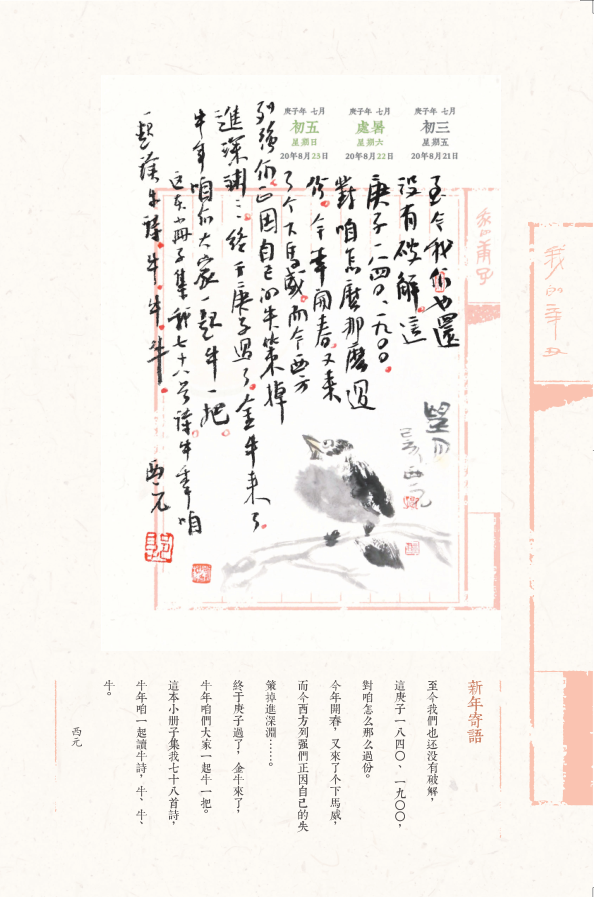 庚子年 七月
初三
星期五
20年8月21日
庚子年 七月
處暑
星期六
20年8月22日
庚子年 七月
初五
星期日
20年8月23日
至今我們也還
没有破解。這
庚子一八四〇、一九〇〇
對咱怎麼那麼過
份。今年開春。又来
了个下馬威。而今西方
列强們正因自己的失策掉
進深渊：：終于庚子過了。金牛来了。
牛年咱們大家一起牛一把。
這本小冊子集我七十八首詩。牛年咱
一起讀牛詩。牛。牛。牛。
西元
我的辛丑
新年寄語
至今我們也还没有破解，
這庚子一八四〇、一九〇〇，
對咱怎么那么過份。
今年開春，又來了个下馬威，
而今西方列强們正因自己的失
策掉進深淵……。
終于庚子過了，金牛來了，
牛年咱們大家一起牛一把。
這本小册子集我七十八首詩，
牛年咱一起讀牛詩，牛、牛、
牛。
西元